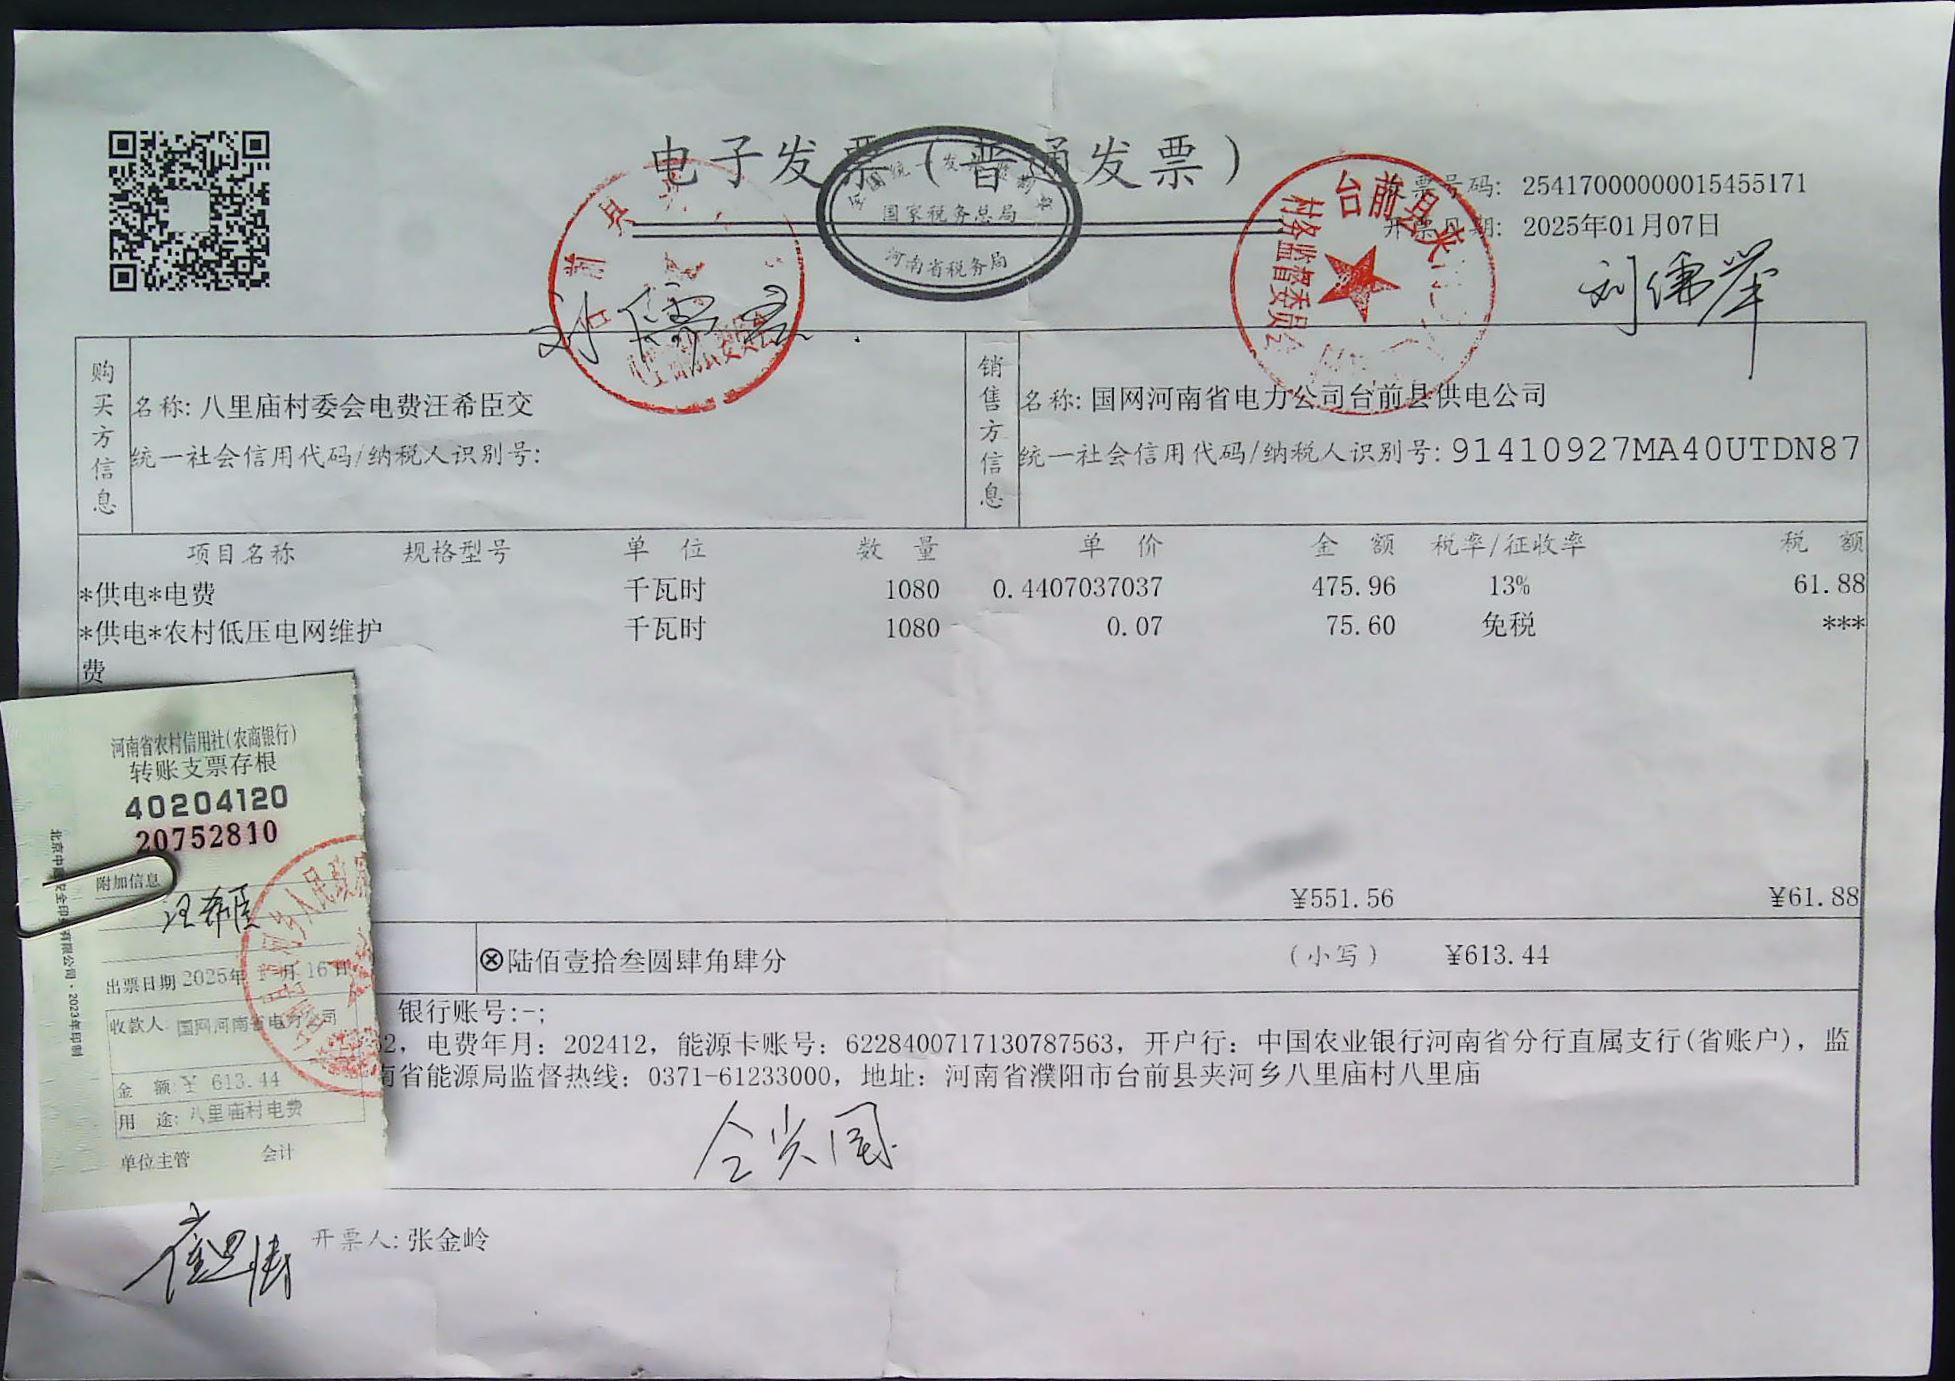 电子发票（普通发票）
国家税务总局
河南省税务局
票号码: 25417000000015455171
开票日期: 2025年01月07日
台前县夹
村务监督委员会
刘儒举
购买方信息
名称: 八里庙村委会电费汪希臣交
统一社会信用代码/纳税人识别号:
销售方信息
名称: 国网河南省电力公司台前县供电公司
统一社会信用代码/纳税人识别号: 91410927MA40UTDN87
项目名称 规格型号 单 位 数 量 单 价 金 额 税率/征收率 税 额
*供电*电费 千瓦时 1080 0.4407037037 475.96 13% 61.88
*供电*农村低压电网维护 千瓦时 1080 0.07 75.60 免税 ***
费
¥551.56 ¥61.88
ⓧ陆佰壹拾叁圆肆角肆分 （小写） ¥613.44
银行账号:-;
2, 电费年月: 202412, 能源卡账号: 6228400717130787563, 开户行: 中国农业银行河南省分行直属支行(省账户), 监
南省能源局监督热线: 0371-61233000, 地址: 河南省濮阳市台前县夹河乡八里庙村八里庙
开票人: 张金岭
河南省农村信用社(农商银行)
转账支票存根
40204120
20752810
附加信息
汪希臣
出票日期 2025年 1 月 16 日
收款人: 国网河南省电力公司
金 额: ¥ 613.44
用 途: 八里庙村电费
单位主管 会计